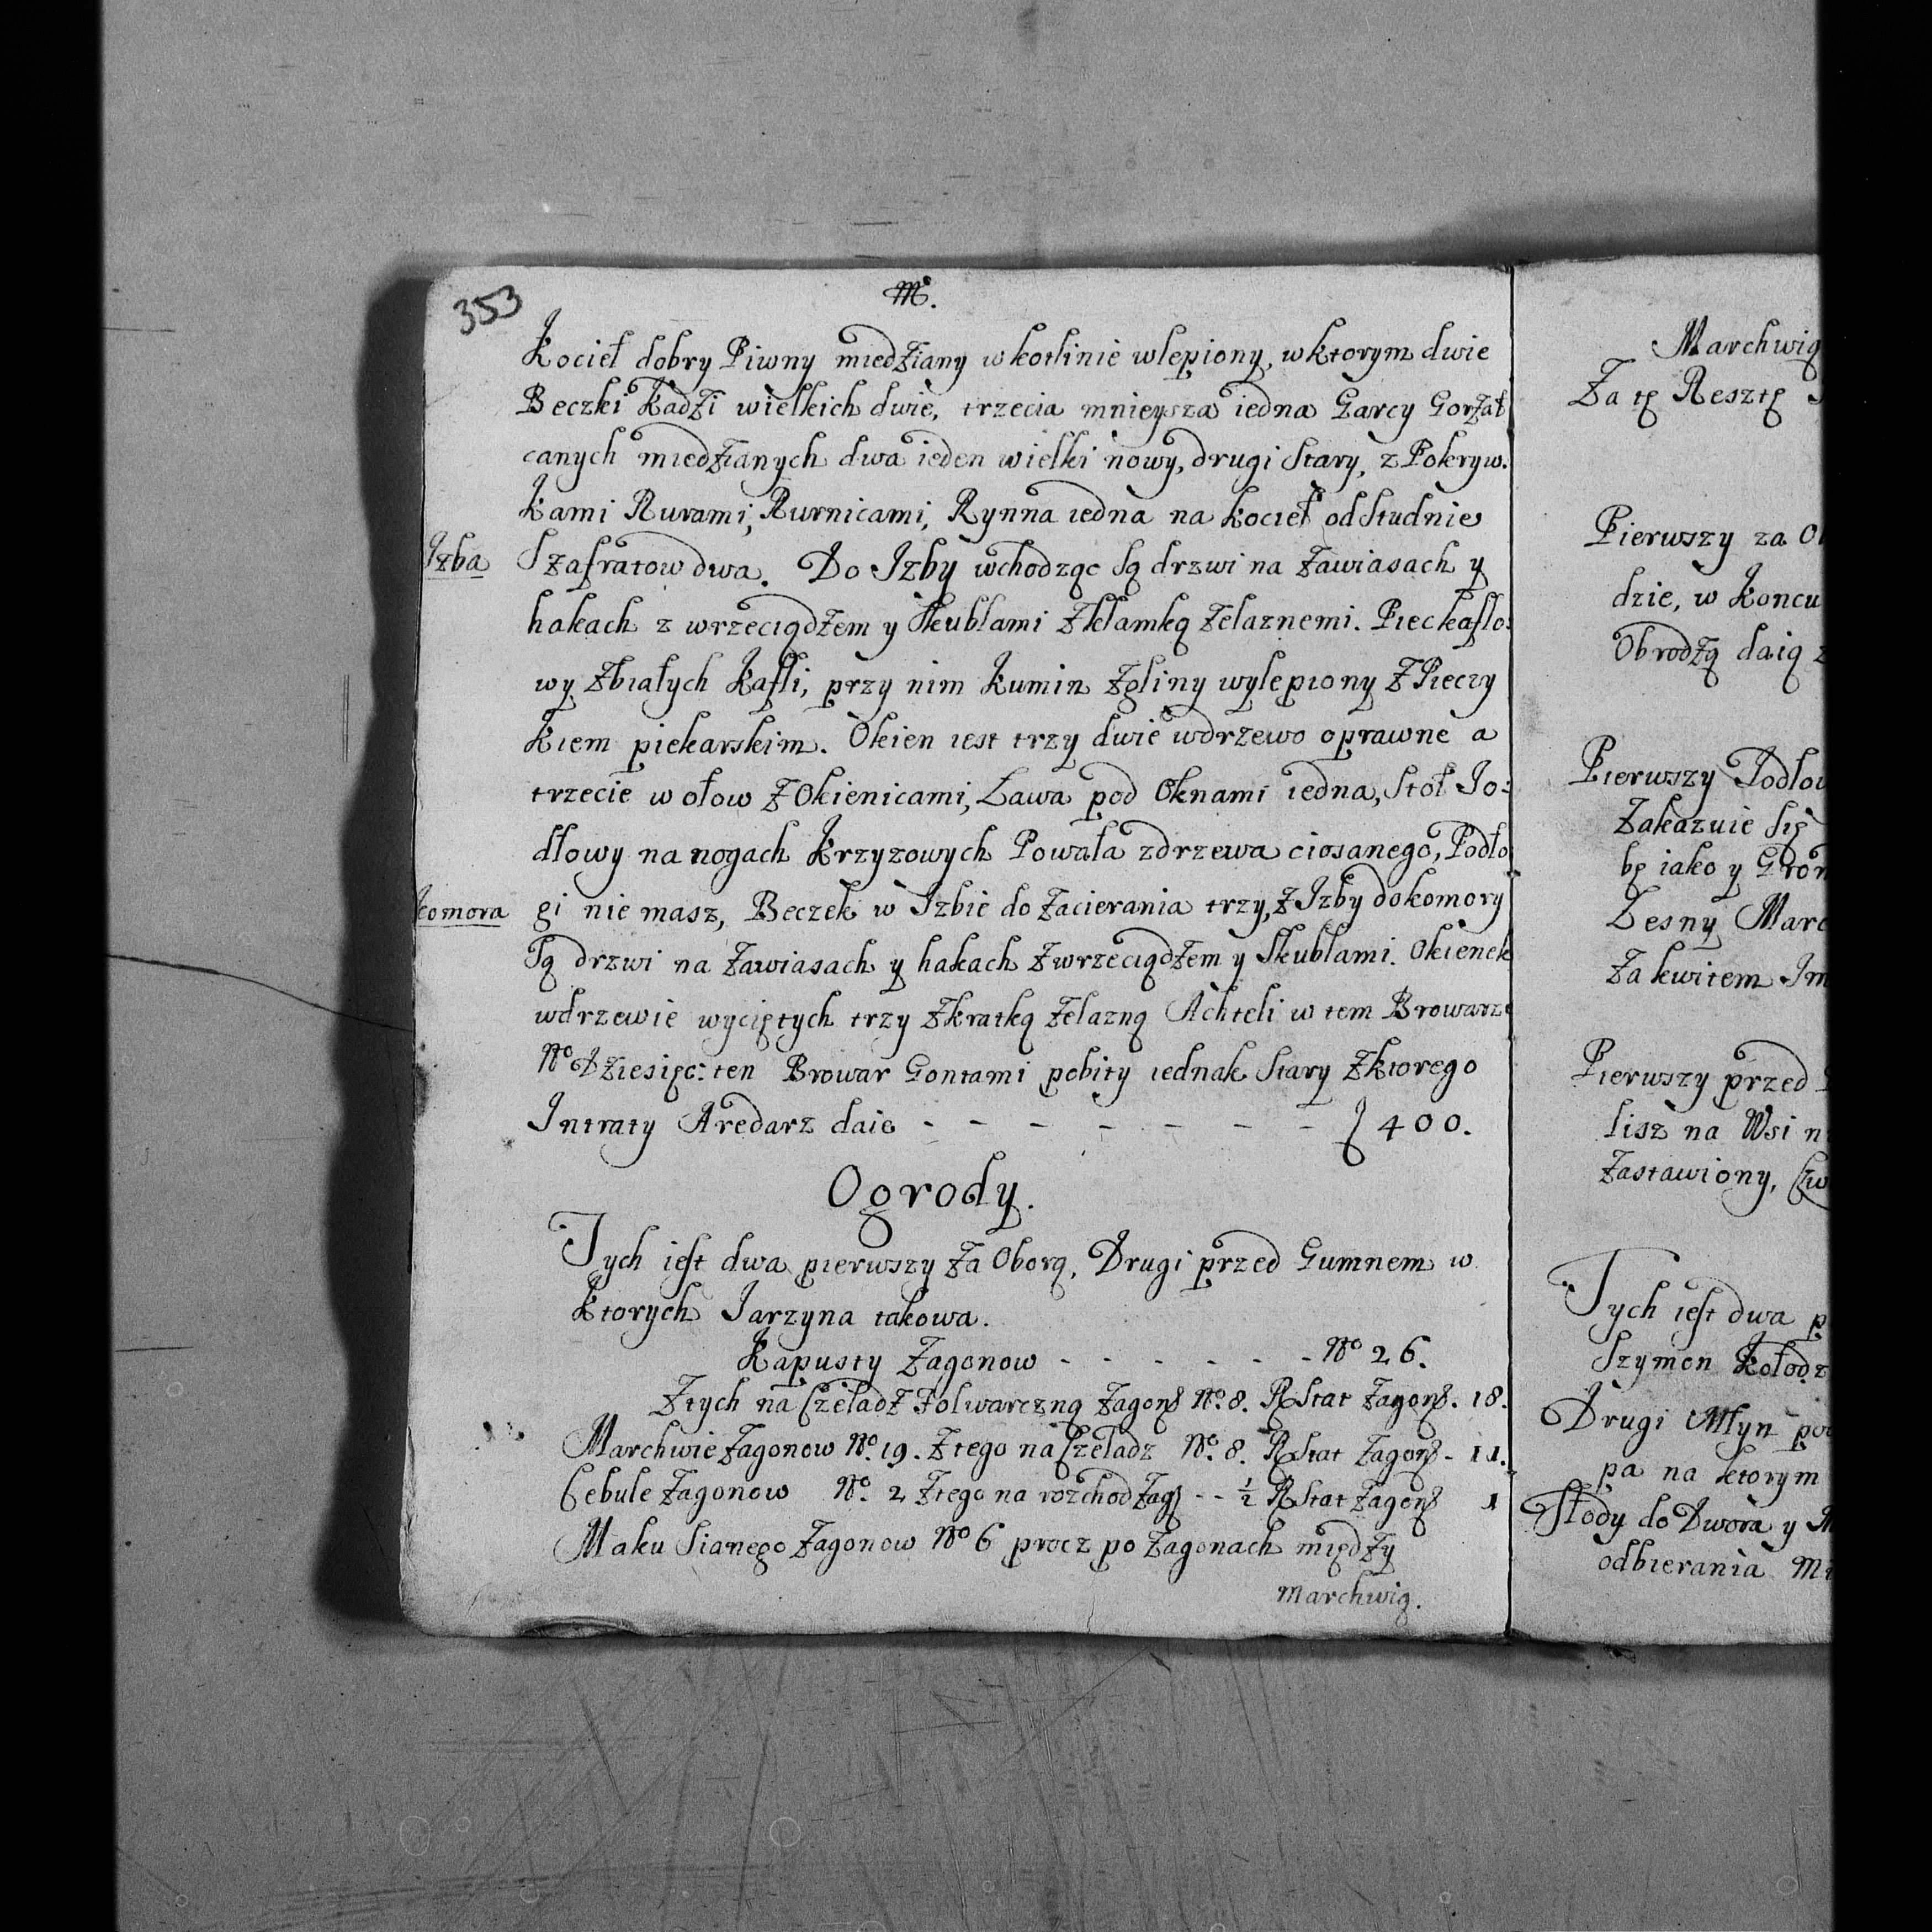 353
Kocieł dobry Piwny miedziany w kotlinie wlepiony, w ktorym dwie
Beczki Kadzi wielkich dwie, trzecia mnieysza iedna Garcy Gorzał
canych miedzianych dwa ieden wielki nowy, drugi Stary, z Pokryw.
Kami Rurami, Rurnicami, Rynna iedna na kocieł od Studnie
Izba
Szafratow dwa. Do Izby wchodząc Są drzwi na Zawiasach y
hakach z wrzeciądzem y Skublami Z klamką Zelaznemi. Piec kaflo:
wy Z białych Kafli, przy nim Kumin Z gliny wylepiony Z Pieczy
Kiem piekarskim. Okien iest trzy dwie w drzewo oprawne a
trzecie w ołow Z Okienicami, Ława pod Oknami iedna, Stoł Jo:
dłowy na nogach Krzyzowych Powała z drzewa ciosanego, Podło
Komora
gi nie masz, Beczek w Izbie do Zacierania trzy, Z Izby do komory
Są drzwi na Zawiasach y hakach Z wrzeciądzem y Skublami. Okienek
w drzewie wyciętych trzy Z kratką Zelazną Achteli w tem Browarze
No Dziesięc: ten Browar Gontami pobity iednak Stary Z ktorego
Intraty Aredarz daie - - - - - - - f 400.
Ogrody.
Tych iest dwa pierwszy Za Oborą, Drugi przed Gumnem w
Ktorych Jarzyna takowa.
Kapusty Zagonow - - - - - - No 26.
Z tych na Czeladz Folwarczną Zagon No. 8. RStat Zagon. 18.
Marchwie Zagonow No. 19. Z tego na Czeladz No. 8. RStat Zagon - 11.
Cebule Zagonow No. 2 Z tego na rozchod Zag - - 1/2 RStat Zagon 1
Maku Sianego Zagonow No 6 procz po Zagonach między
marchwią.
Marchwią
Za tę Resztę
Pierwszy za
dzie, w Koncu
Obrodzą daią
Pierwszy Jodłow
Zakazuie Się
bę iako y
Lesny Marc
Za kwitem Jm
Pierwszy przed
lisz na Wsi
Zastawiony,
Tych iest dwa p
Szymon Kołodz
Drugi Młyn
pa na ktorym
Słody do Dwora y
odbierania